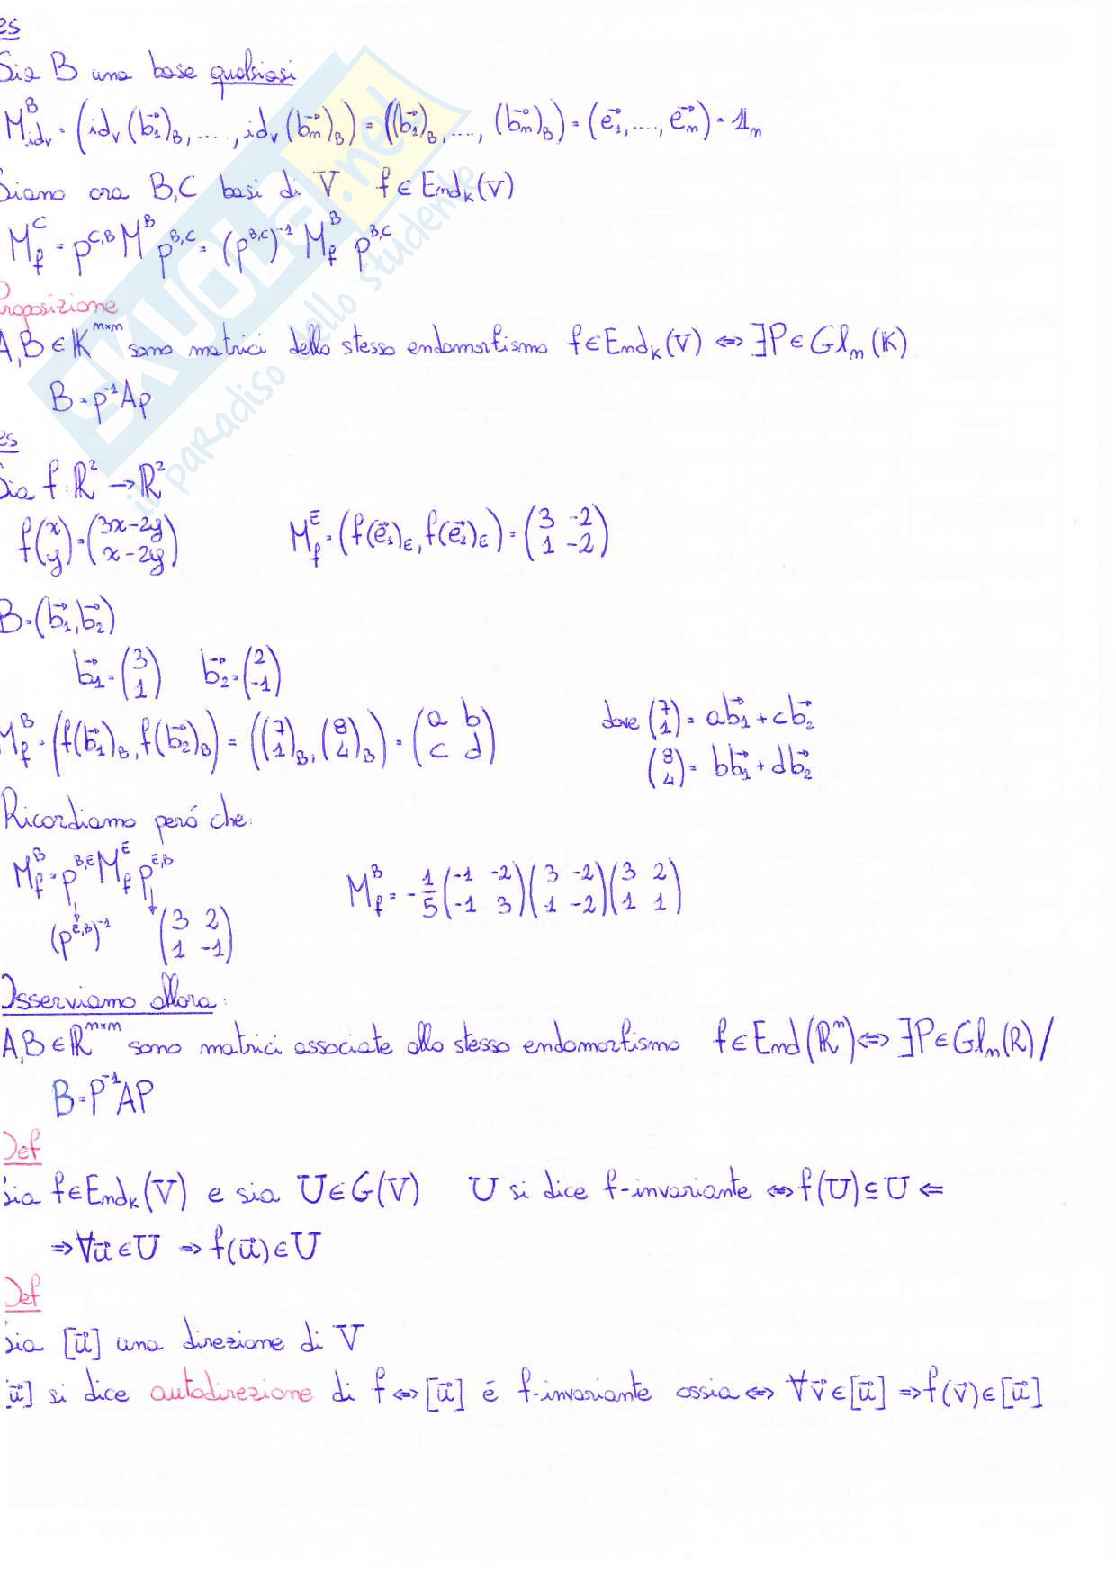 es
Sia B una base qualsiasi
M^B_{id_V} = (id_V(b⃗₁)_B, ...., id_V(b⃗ₙ)_B) = ((b⃗₁)_B, ...., (b⃗ₙ)_B) = (e⃗₁, ...., e⃗ₙ) = 𝟙ₙ
Siano ora B,C basi di V f ∈ End_K(V)
M^C_f = p^{C,B} M^B p^{B,C} = (p^{B,C})^{-1} M^B_f p^{B,C}
Proposizione
A,B ∈ K^{n×n} sono matrici dello stesso endomorfismo f ∈ End_K(V) ⇔ ∃P ∈ Gl_n(K)
B = p^{-1}Ap
es
Sia f: ℝ² → ℝ²
f(x y) = (3x-2y x-2y) M^E_f = (f(e⃗₁)_E, f(e⃗₁)_E) = (3 -2 1 -2)
B = (b⃗₁, b⃗₂)
b⃗₁ = (3 1) b⃗₂ = (2 -1)
M^B_f = (f(b⃗₁)_B, f(b⃗₂)_B) = ((7 1)_B, (8 4)_B) = (a b c d) dove (7 1) = ab⃗₁ + cb⃗₂
(8 4) = bb⃗₁ + db⃗₂
Ricordiamo però che:
M^B_f = p^{B,E} M^E_f p^{E,B} M^B_f = -1/5 (-1 -2 -1 3)(3 -2 1 -2)(3 2 1 1)
(p^{E,B})^{-1} (3 2 1 -1)
Osserviamo allora:
A,B ∈ ℝ^{n×n} sono matrici associate allo stesso endomorfismo f ∈ End(ℝⁿ) ⇔ ∃P ∈ Gl_n(ℝ) /
B = P^{-1}AP
Def
Sia f ∈ End_K(V) e sia U ∈ G(V) U si dice f-invariante ⇔ f(U) ⊆ U ⇐
⇒ ∀u⃗ ∈ U ⇒ f(u⃗) ∈ U
Def
Sia [u⃗] una direzione di V
[u⃗] si dice autodirezione di f ⇔ [u⃗] é f-invariante ossia ⇔ ∀v⃗ ∈ [u⃗] ⇒ f(v⃗) ∈ [u⃗]
SKUOLA.net
il paradiso dello studente